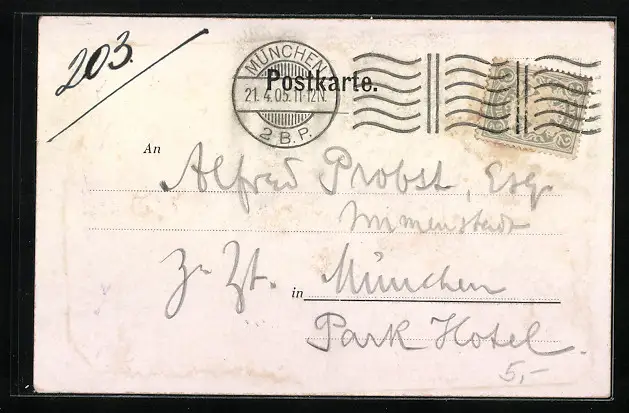 203.
MÜNCHEN
21.4.05.11-12N.
2 B.P.
Postkarte.
An Alfred Probst, Esq.
Immenstadt
z. Zt. in München
Park Hotel.
5,-